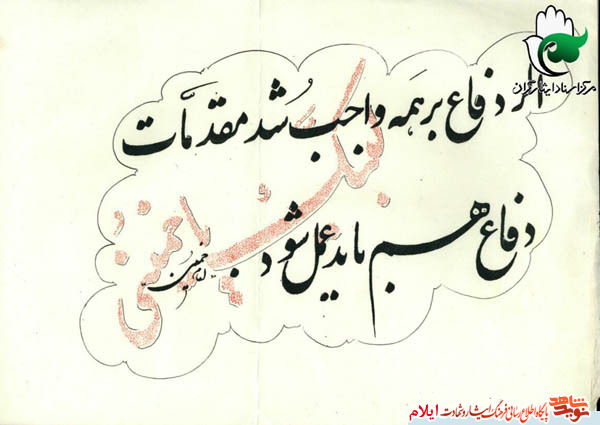 مرکز اسناد ایثارگران
اگر دفاع بر همَه واجب شُد مقدمّات
دفاع هم باید عمل شود
امام خمینی
لبیک یا خمینی
نوید شاهد پایگاه اطلاع رسانی فرهنگ ایثار و شهادت ایلام